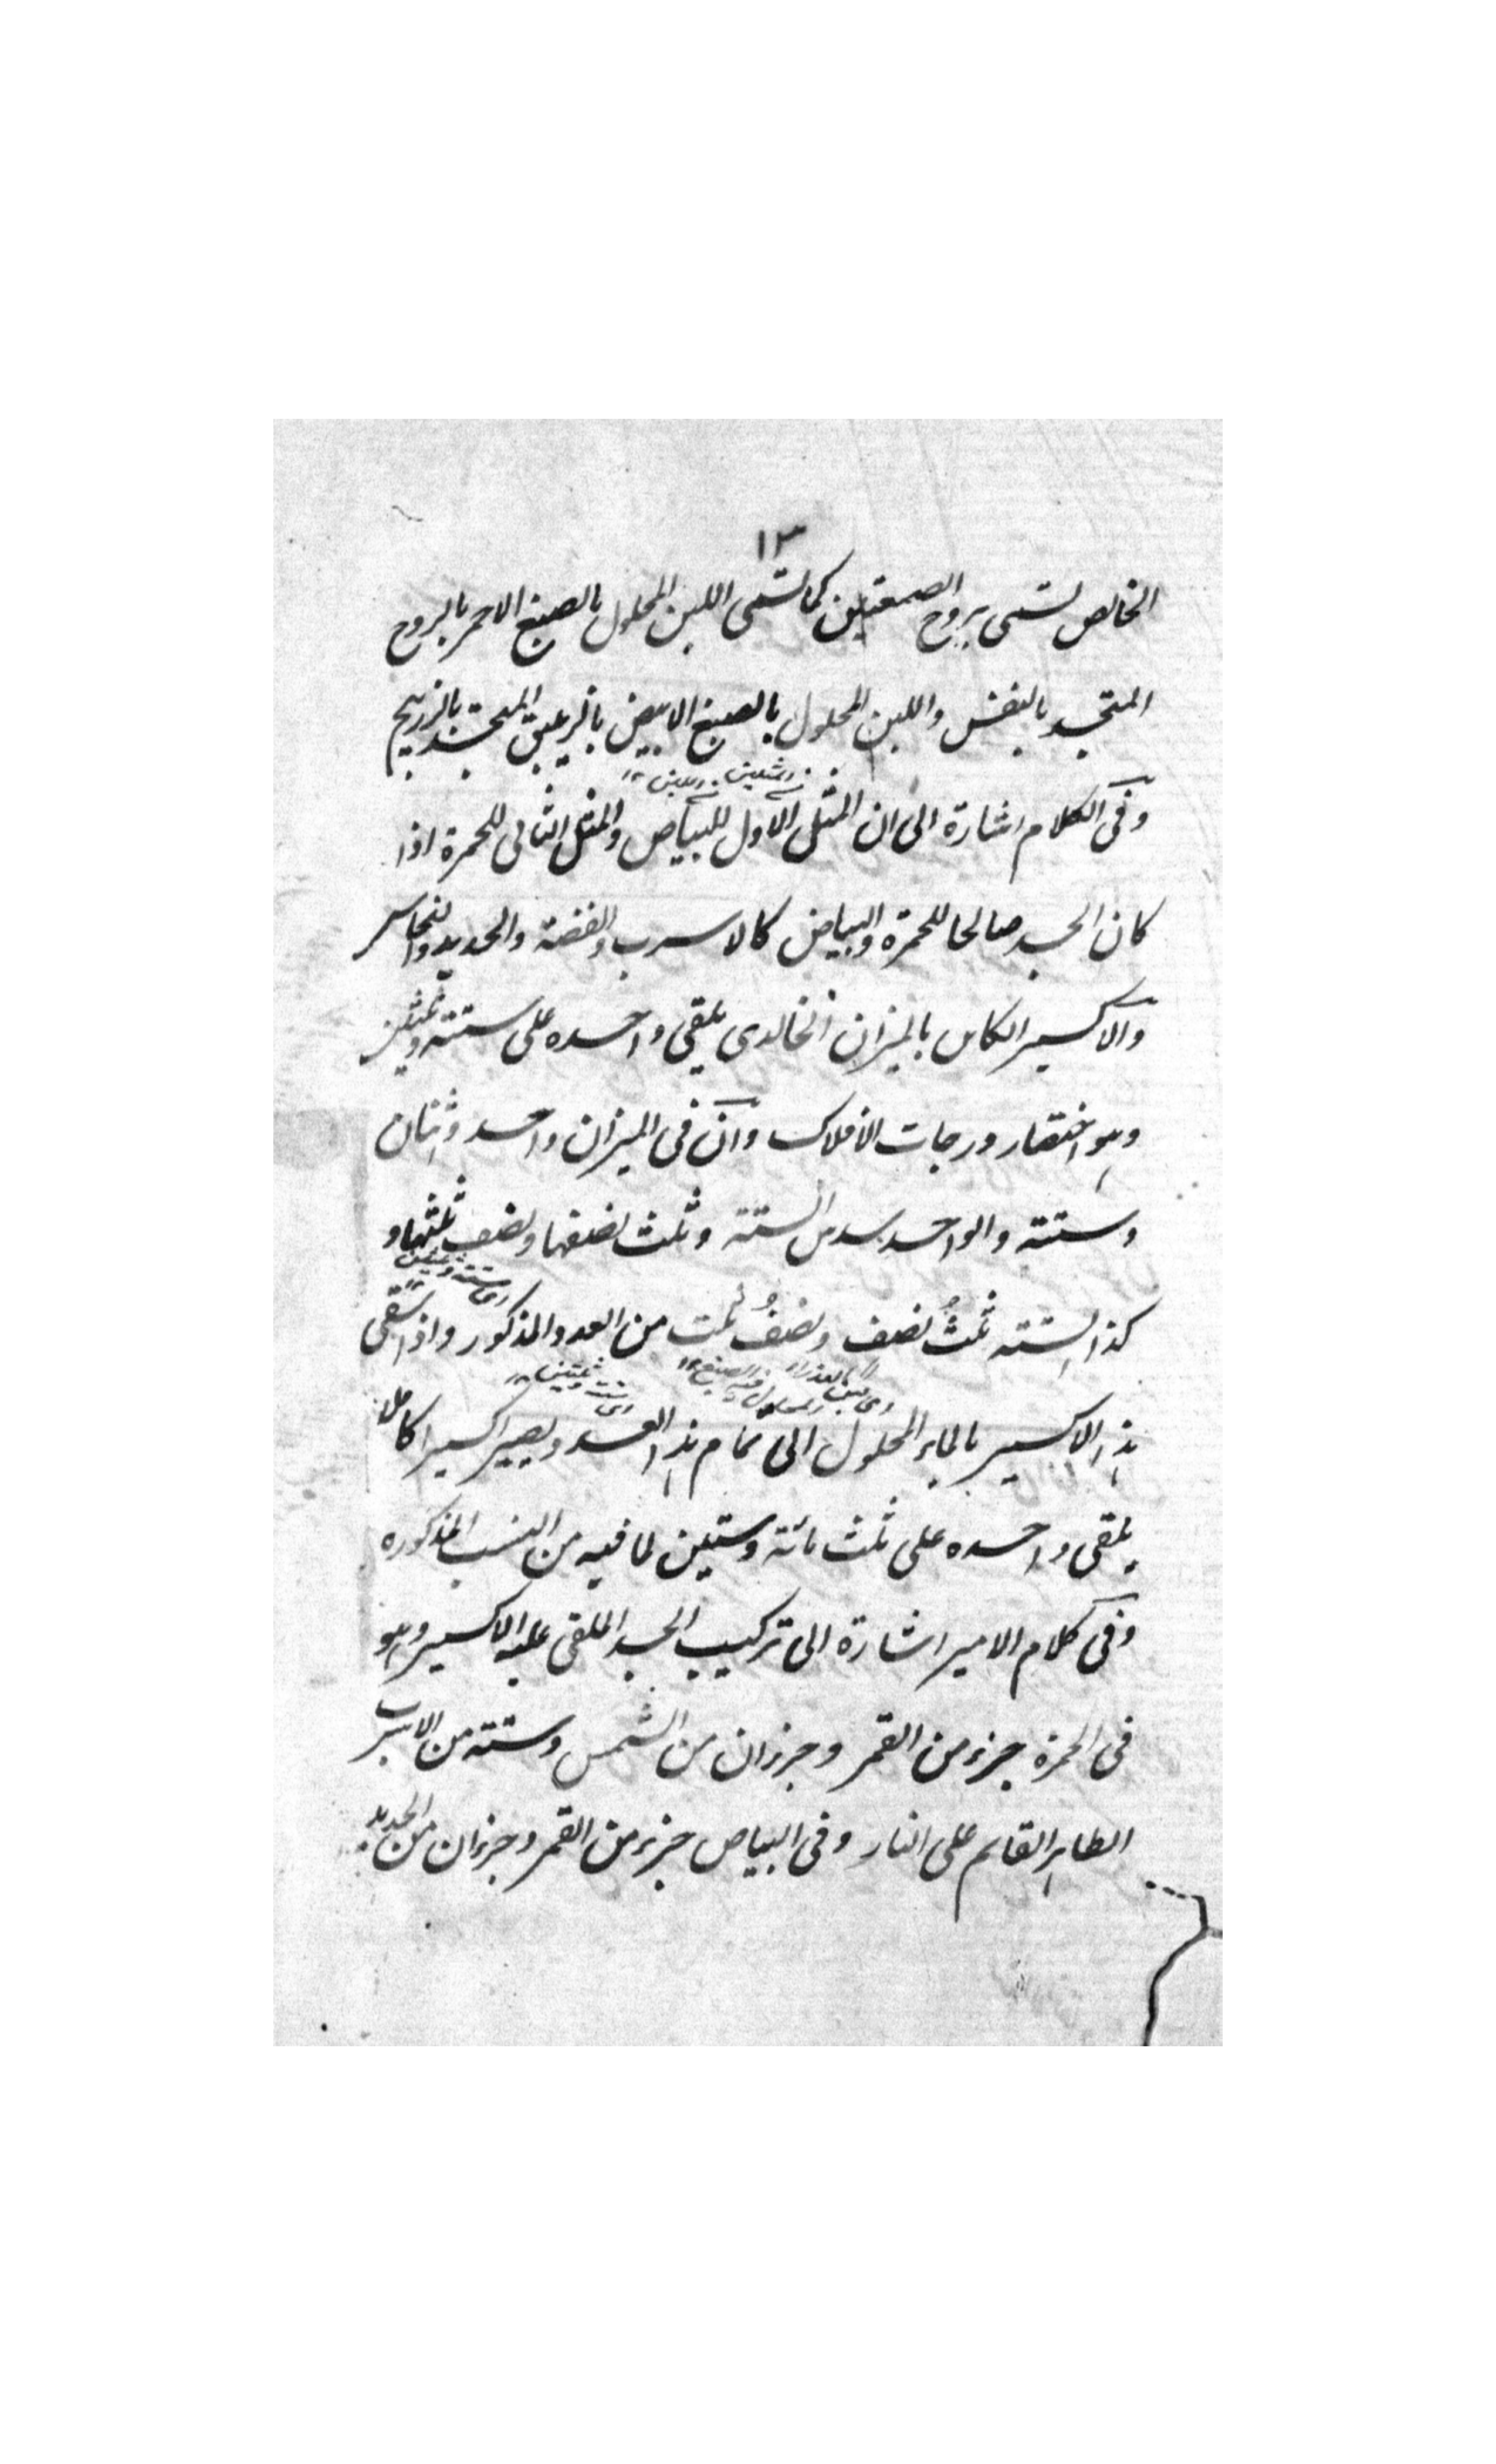 ١٣
الخالص تسمى بروح الصمغتين كما تسمى اللبن المحلول بالصبغ الاحمر بالروح
المتجسد بالنفس واللبن المحلول بالصبغ الابيض بالزيبق المنجمد بالزرنيخ
وفى الكلام اشارة الى ان المثلى الاول للبياض والمثل الثانى للحمرة اذا
كان الجسد صالحا للحمرة والبياض كالاسرب والفضة والحديد والنحاس
والاكسير الكامل بالميزان الخالدى يلقى واحده على ستة وثلثين
وهو اختصار درجات الافلاك وان فى الميزان واحد واثنان
وستة والواحد سدس الستة وثلث نصفها ونصف ثلثها و
اى ستة وثلثين
كذا الستة ثلث نصف ونصف ثلث من العدد المذكور واذا سقى
اى ستة وثلثين ١٢
هذا الاكسير بالماء المحلول الى تمام هذا العدد ويصير اكسيرا كاملا
يلقى واحده على ثلث مائة وستين لما فيه من النسب المذكوره
وفى كلام الامير اشارة الى تركيب الجسد الملقى عليه الاكسير وهو
فى الحمرة جزء من القمر وجزءان من الشمس وستة من الاسرب
الطاهر القائم على النار وفى البياض جزء من القمر وجزءان من الحديد